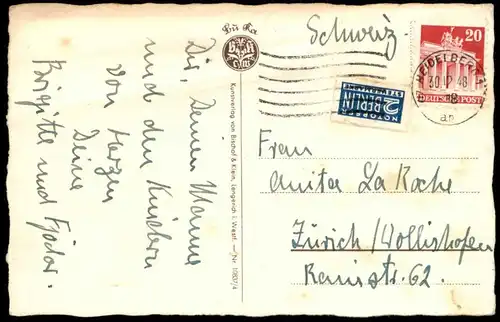 Dir, Deinem Manne
und den Kindern
von Herzen
Deine
Brigitte und Fjodor.
Hü Ra
Kunstverlag von Bischof & Klein, Lengerich i. Westf. — Nr. 11837/4
Schweiz
20
DEUTSCHE POST
HEIDELBERG
48
2
NOTOPFER
BERLIN
STEUERMARKE
Frau
Anita La Roche
Zürich/Wollishofen
Renisstr. 62.